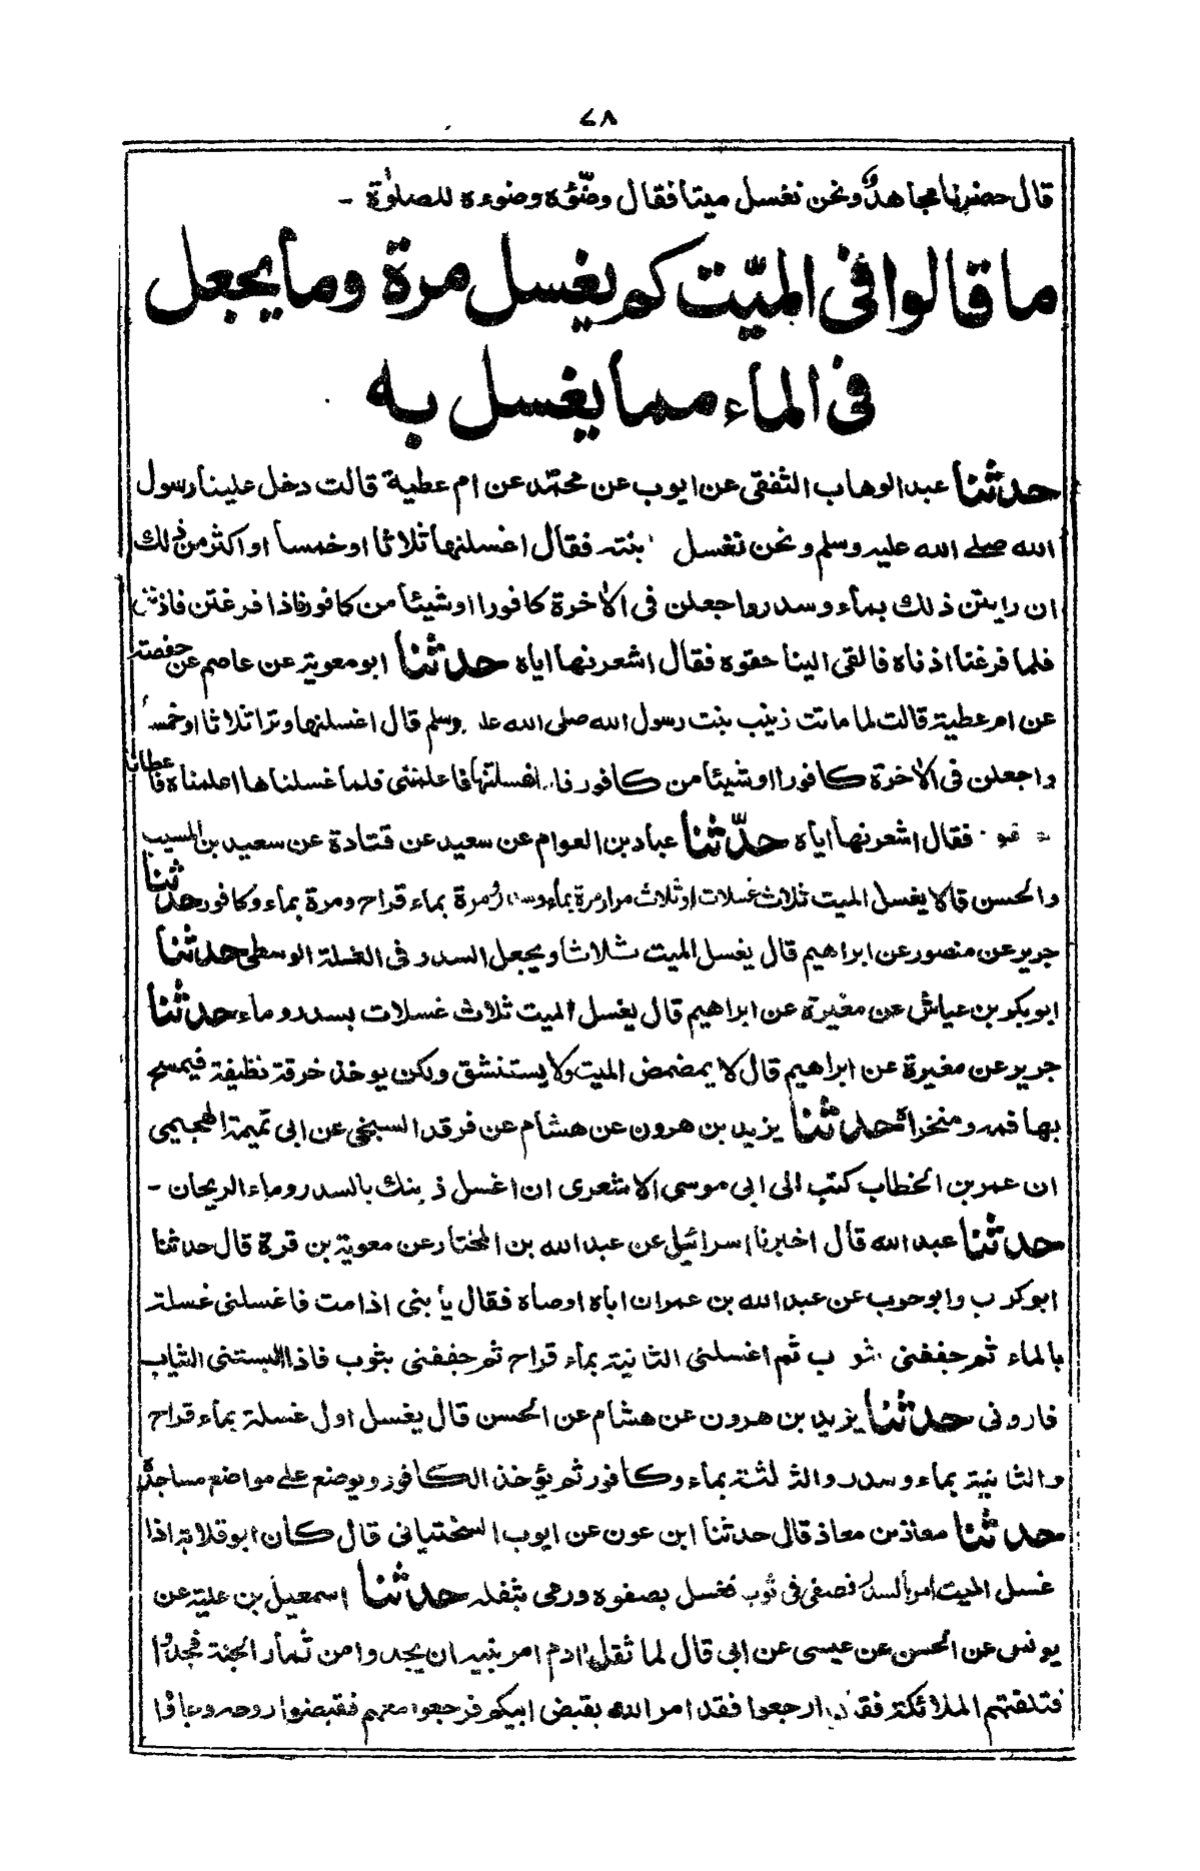 ٧٨
قال حضرنا مجاهد ونحن نغسل ميتا فقال وضّئوه وضوءه للصلوٰة ـ
ما قالوا فى الميّت كم يغسل مرة وما يجعل
فى الماء مما يغسل به
حدثنا عبد الوهاب الثقفى عن ايوب عن محمّد عن ام عطية قالت دخل علينا رسول
الله صلے الله عليه وسلم ونحن نغسل بنته فقال اغسلنها ثلاثا او خمسا او اكثر من ذلك
ان رايتن ذلك بماء وسدر واجعلن فى الاخرة كافورا او شيئا من كافور فاذا فرغتن فاذننى
فلما فرغنا اذناه فالقى الينا حقوه فقال اشعرنها اياه حدثنا ابو معوية عن عاصم عن حفصة
عن ام عطية قالت لما ماتت زينب بنت رسول الله صلى الله وسلم قال اغسلنها وترا ثلاثا او خمسا
واجعلن فى الاخرة كافورا او شيئا من كافور فاعلمننى فلما غسلناها اعلمناه فاعطانا
فقال اشعرنها اياه حدّثنا عباد بن العوام عن سعيد عن قتادة عن سعيد بن المسيب
والحسن قالا يغسل الميت ثلاث غسلات او ثلاث مرار مرة بماء مرة بماء قراح ومرة بماء وكافور حدثنا
جرير عن منصور عن ابراهيم قال يغسل الميت ثلاثا ويجعل السدر فى الغسلة الوسطى حدثنا
ابو بكر بن عياش عن مغيرة عن ابراهيم قال يغسل الميت ثلاث غسلات بسدر وماء حدثنا
جرير عن مغيرة عن ابراهيم قال لا يمضمض الميت ولا يستنشق ولكن يوخذ خرقة نظيفة فيمسح
بها فمه ومنخراه حدثنا يزيد بن هرون عن هشام عن فرقد السبخى عن ابى تميمة الهجيمى
ان عمر بن الخطاب كتب الى ابى موسى الاشعرى ان اغسل ذ بنك بالسدر وماء الريحان ـ
حدثنا عبد الله قال اخبرنا اسرائيل عن عبد الله بن المختار عن معوية بن قرة قال حدثنا
ابو كرب وابو حرب عن عبد الله بن عمر ان اباه اوصاه فقال يا بنى اذا مت فاغسلنى غسلة
بالماء ثم جففنى ثم اغسلنى الثانية بماء قراح ثم جففنى بثوب فاذا البستنى الثياب
فازرنى حدثنا يزيد بن هرون عن هشام عن الحسن قال يغسل اول غسلة بماء قراح
والثانية بماء وسدر والثالثة بماء وكافور ثم يؤخذ الكافور ويوضع على مواضع مساجده
حدثنا معاذ بن معاذ قال حدثنا ابن عون عن ايوب السختيانى قال كان ابو قلابة اذا
غسل الميت امر بالسدر فصفى فى ثوب فغسل بصفوه ورمى بثفله حدثنا اسمعيل بن علية عن
يونس عن الحسن عن عيسى عن ابى قال لما ثقل ادم امر بنيه ان يجدوا من ثمار الجنة فجدوا
فتلقتهم الملائكة ارجعوا فقد امر الله بقبض ابيكم فرجعوا معهم فقبضوا روحه وجاؤا